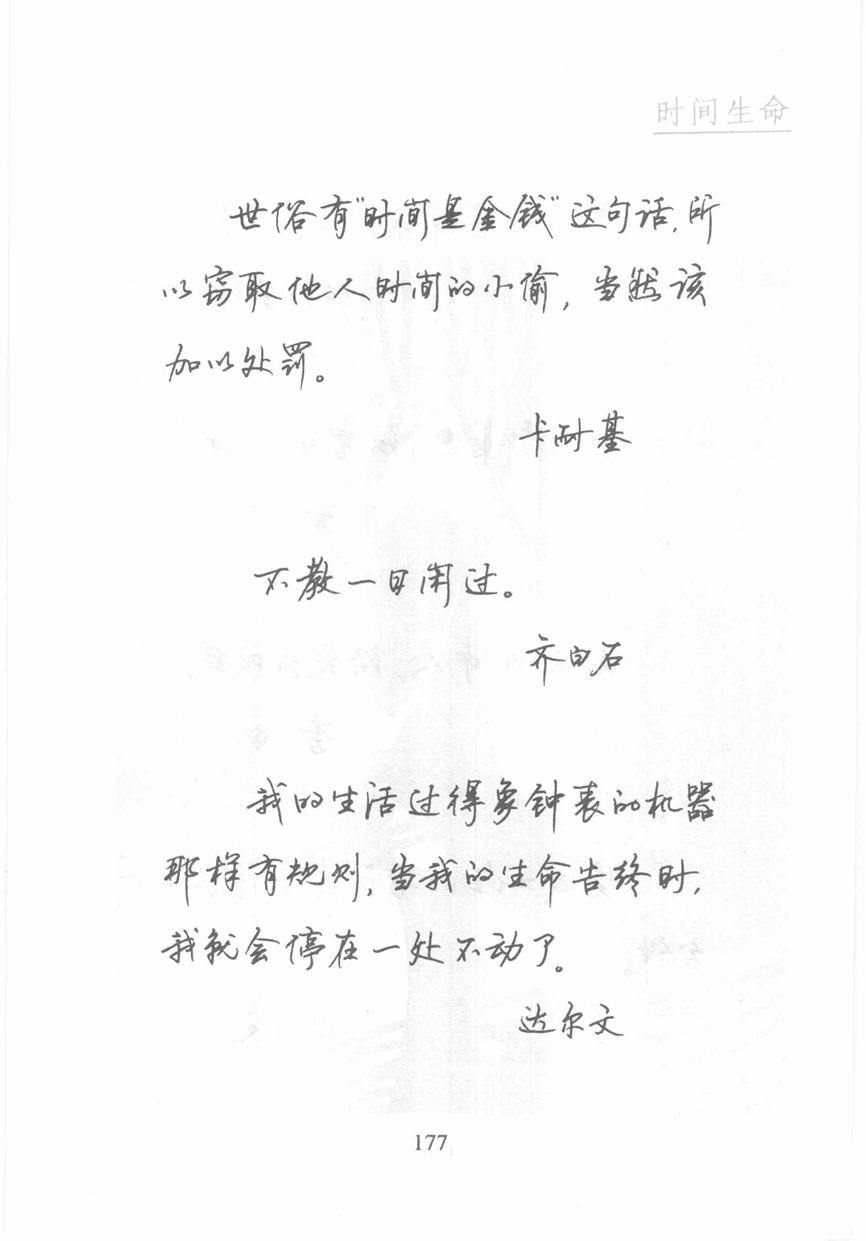 时间生命
世俗有"时间是金钱"这句话,所
以窃取他人时间的小偷，当然该
加以处罚。
卡耐基
不教一日闲过。
齐白石
我的生活过得象钟表的机器
那样有规则,当我的生命告终时,
我就会停在一处不动了。
达尔文
177